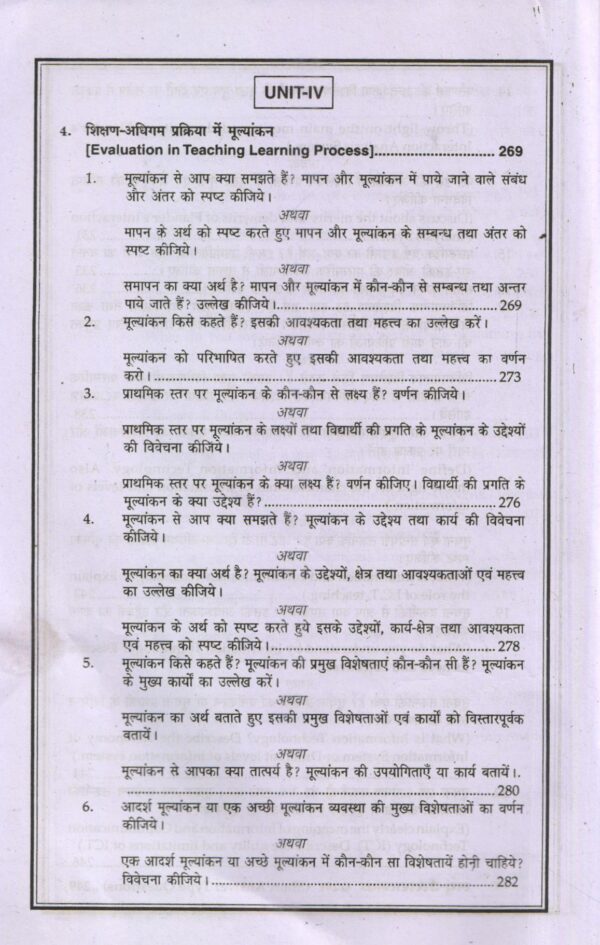 UNIT-IV
4. शिक्षण-अधिगम प्रक्रिया में मूल्यांकन
[Evaluation in Teaching Learning Process]........................ 269
1. मूल्यांकन से आप क्या समझते हैं? मापन और मूल्यांकन में पाये जाने वाले संबंध
और अंतर को स्पष्ट कीजिये।
अथवा
मापन के अर्थ को स्पष्ट करते हुए मापन और मूल्यांकन के सम्बन्ध तथा अंतर को
स्पष्ट कीजिये।
अथवा
समापन का क्या अर्थ है? मापन और मूल्यांकन में कौन-कौन से सम्बन्ध तथा अन्तर
पाये जाते हैं? उल्लेख कीजिये।.................................................. 269
2. मूल्यांकन किसे कहते हैं? इसकी आवश्यकता तथा महत्त्व का उल्लेख करें।
अथवा
मूल्यांकन को परिभाषित करते हुए इसकी आवश्यकता तथा महत्त्व का वर्णन
करो।.............................................................................. 273
3. प्राथमिक स्तर पर मूल्यांकन के कौन-कौन से लक्ष्य हैं? वर्णन कीजिये।
अथवा
प्राथमिक स्तर पर मूल्यांकन के लक्ष्यों तथा विद्यार्थी की प्रगति के मूल्यांकन के उद्देश्यों
की विवेचना कीजिये।
अथवा
प्राथमिक स्तर पर मूल्यांकन के क्या लक्ष्य हैं? वर्णन कीजिए। विद्यार्थी की प्रगति के
मूल्यांकन के क्या उद्देश्य हैं?.................................................. 276
4. मूल्यांकन से आप क्या समझते हैं? मूल्यांकन के उद्देश्य तथा कार्य की विवेचना
कीजिये।
अथवा
मूल्यांकन का क्या अर्थ है? मूल्यांकन के उद्देश्यों, क्षेत्र तथा आवश्यकताओं एवं महत्त्व
का उल्लेख कीजिये।
अथवा
मूल्यांकन के अर्थ को स्पष्ट करते हुये इसके उद्देश्यों, कार्य-क्षेत्र तथा आवश्यकता
एवं महत्त्व को स्पष्ट कीजिये।.................................................. 278
5. मूल्यांकन किसे कहते हैं? मूल्यांकन की प्रमुख विशेषताएं कौन-कौन सी हैं? मूल्यांकन
के मुख्य कार्यों का उल्लेख करें।
अथवा
मूल्यांकन का अर्थ बताते हुए इसकी प्रमुख विशेषताओं एवं कार्यों को विस्तारपूर्वक
बतायें।
अथवा
मूल्यांकन से आपका क्या तात्पर्य है? मूल्यांकन की उपयोगिताएँ या कार्य बतायें।.
.............................................................................. 280
6. आदर्श मूल्यांकन या एक अच्छी मूल्यांकन व्यवस्था की मुख्य विशेषताओं का वर्णन
कीजिये।
अथवा
एक आदर्श मूल्यांकन या अच्छे मूल्यांकन में कौन-कौन सा विशेषतायें होनी चाहिये?
विवेचना कीजिये।.................................................. 282